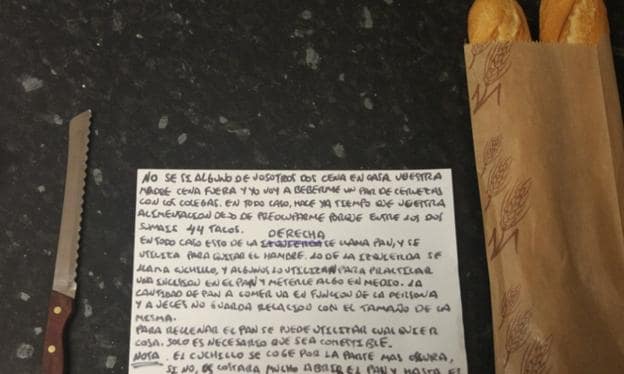 NO SE SI ALGUNO DE VOSOTROS DOS CENA EN CASA. VUESTRA
MADRE CENA FUERA Y YO VOY A BEBERME UN PAR DE CERVEZAS
CON LOS COLEGAS. EN TODO CASO, HACE YA TIEMPO QUE VUESTRA
ALIMENTACION DEJO DE PREOCUPARME PORQUE ENTRE LOS DOS
SUMAIS 44 TACOS.
DERECHA
EN TODO CASO ESTO DE LA IZQUIERDA SE LLAMA PAN, Y SE
UTILIZA PARA QUITAR EL HAMBRE. LO DE LA IZQUIERDA SE
LLAMA CUCHILLO, Y ALGUNOS LO UTILIZAN PARA PRACTICAR
UNA INCISION EN EL PAN Y METERLE ALGO EN MEDIO. LA
CANTIDAD DE PAN A COMER VA EN FUNCION DE LA PERSONA
Y A VECES NO GUARDA RELACION CON EL TAMAÑO DE LA
MISMA.
PARA RELLENAR EL PAN SE PUEDE UTILIZAR CUALQUIER
COSA. SOLO ES NECESARIO QUE SEA COMESTIBLE.
NOTA. EL CUCHILLO SE COGE POR LA PARTE MAS OSCURA,
SI NO, OS COSTARA MUCHO ABRIR EL PAN Y HASTA